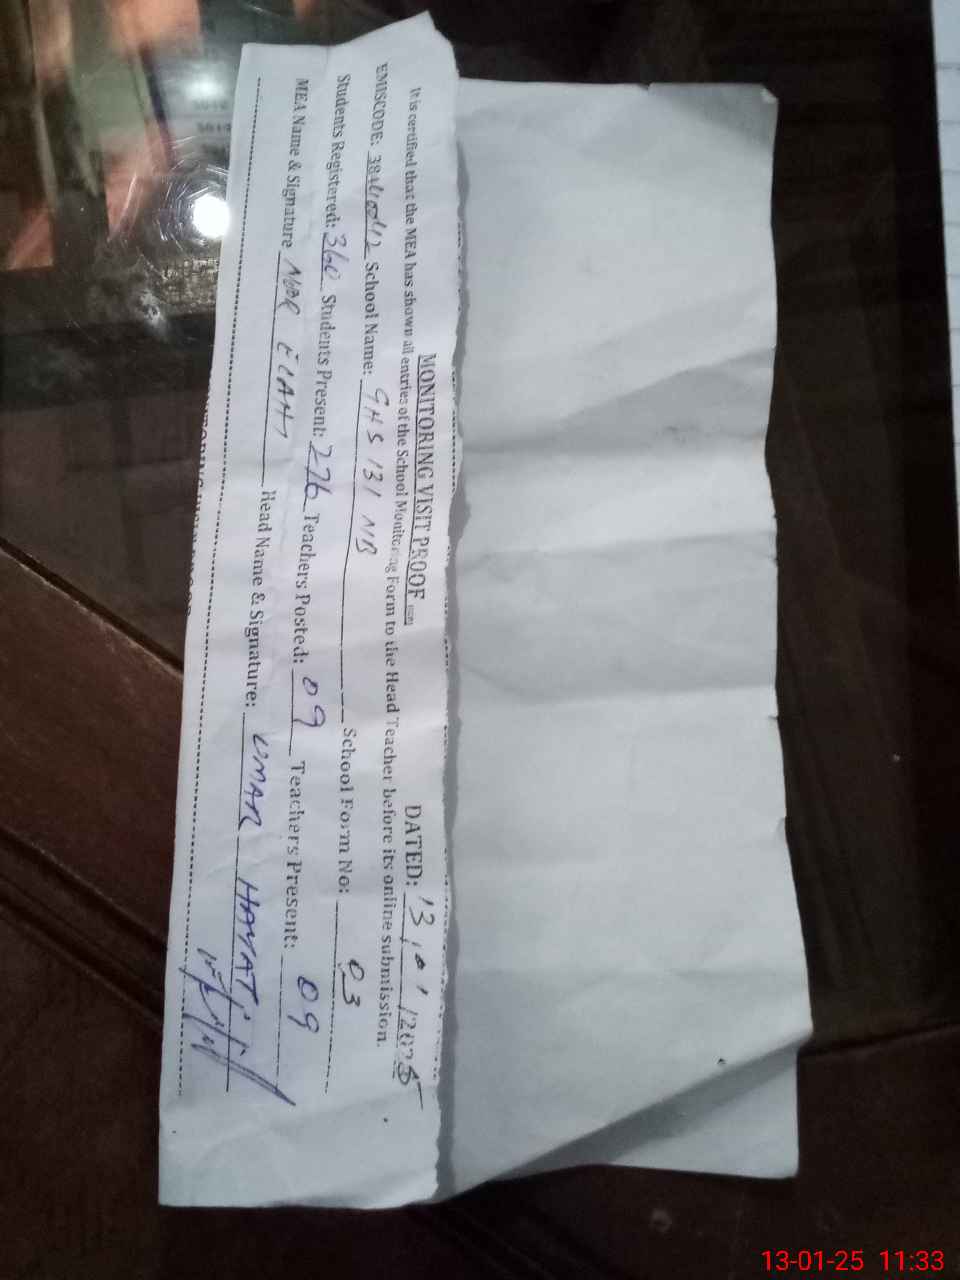 MONITORING VISIT PROOF
DATED: 13/01/2025
It is certified that the MEA has shown all entries of the School Monitoring Form to the Head Teacher before its online submission.
EMISCODE: School Name: GHS 131 NB School Form No: 03
Students Registered: 360 Students Present: 276 Teachers Posted: 09 Teachers Present: 09
MEA Name & Signature NOOR ELAHI Head Name & Signature: UMAR HAYAT
13-01-25 11:33